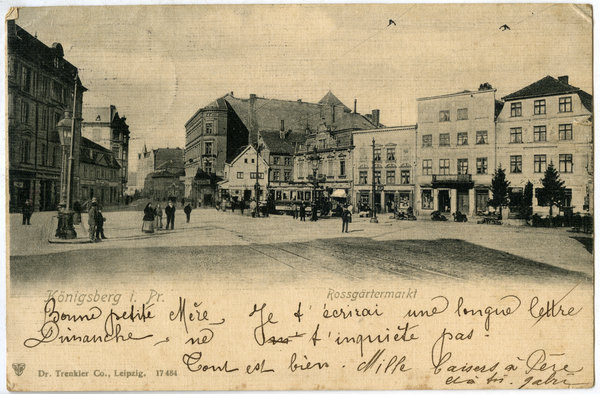 Königsberg i. Pr.
Rossgärtermarkt
Bonne petite Mère, Je t'écrirai une longue lettre
Dimanche, ne t'inquiète pas.
Tout est bien. Mille baisers, à Père
et à toi.
Dr. Trenkler Co., Leipzig. 17484